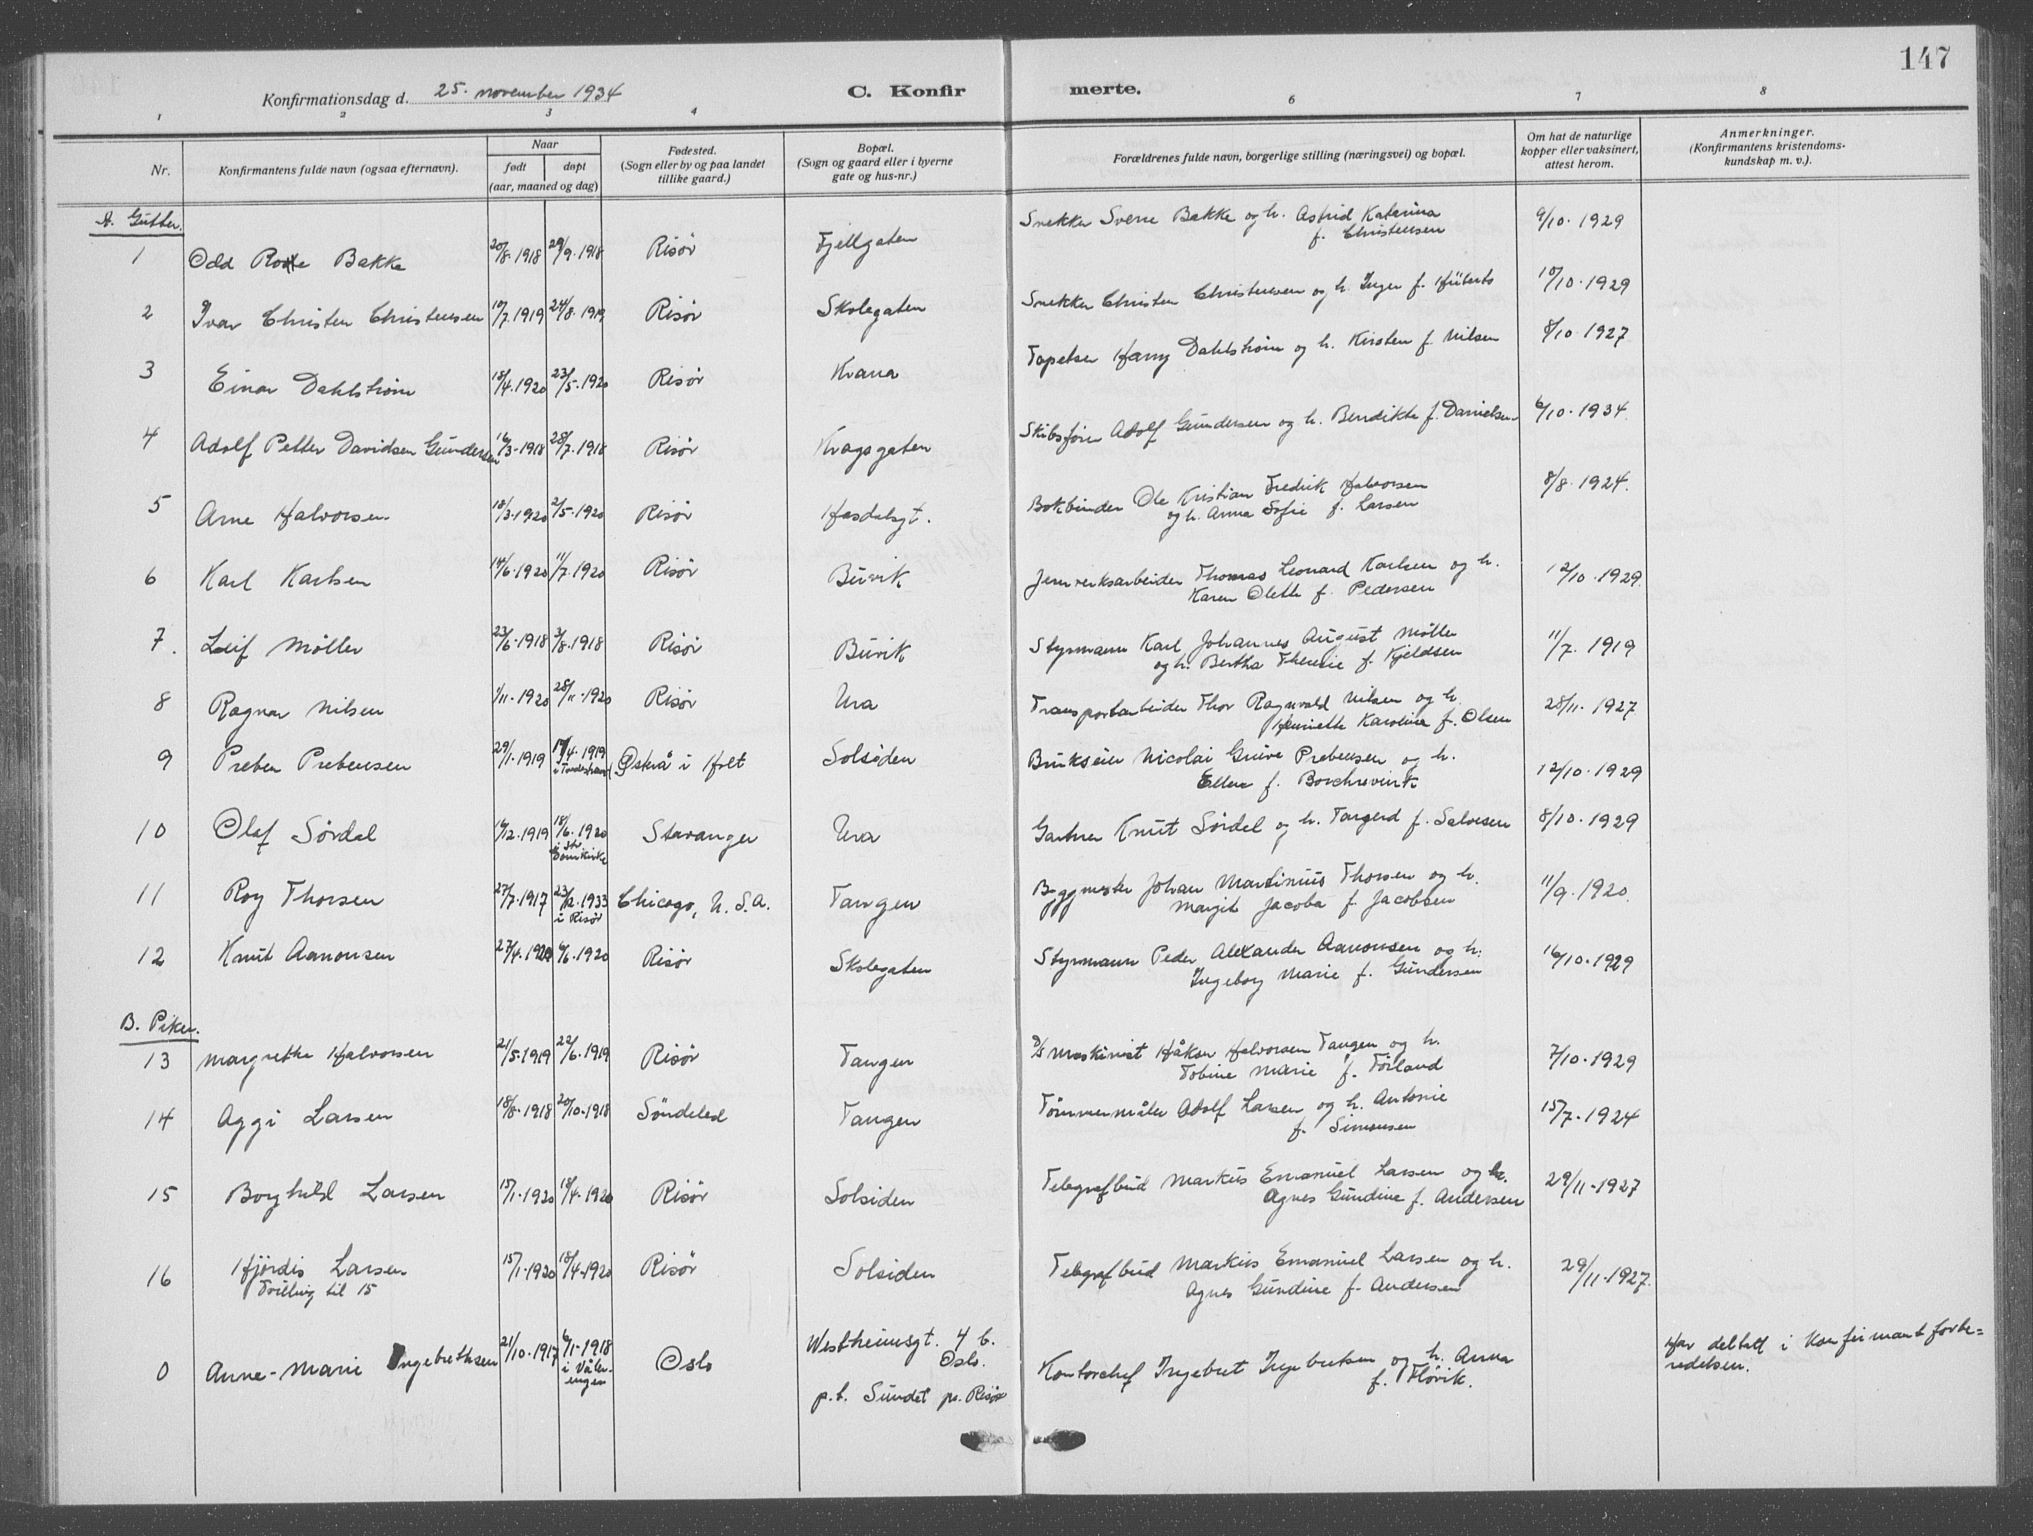 147
Konfirmationsdag d. 25. november 1934 C. Konfirmerte.
1 2 3 4 6 7 8
Nr. Konfirmantens fulde navn (ogsaa efternavn). Naar født døpt (aar, maaned og dag) Fødested. (Sogn eller by og paa landet tillike gaard.) Bopæl. (Sogn og gaard eller i byerne gate og hus-nr.) Forældrenes fulde navn, borgerlige stilling (næringsvei) og bopæl. Om hat de naturlige kopper eller vaksinert, attest herom. Anmerkninger. (Konfirmantens kristendomskundskap m. v.).
A. Gutter.
1 Odd Bakke 20/8-1918 29/9-1918 Risør Fjellgaten Snekker Sverre Bakke og h. Astrid Katarina f. Christensen 9/10-1929
2 Ivar Christen Christensen 10/7.1919 24/8-1919 Risør Skolegaten Snekker Christen Christensen og h. Inger f. 10/10-1929
3 Einar Dahlstrøm 18/4.1920 23/5-1920 Risør Krana Tapetser Harry Dahlstrøm og h. Kirsten f. Nilsen 8/10-1927
4 Adolf Petter Davidsen Gundersen 16/3-1918 28/7-1918 Risør Kragsgaten Skibsfører Adolf Gundersen og h. Bendikte f. Danielsen 6/10-1934
5 Arne Halvorsen 18/3.1920 2/5-1920 Risør Hasdalsgt. Bokbinder Ole Kristian Fredrik Halvorsen og h. Anna Sofie f. Larsen 8/8-1924.
6 Karl Karlsen 14/6-1920 11/7-1920 Risør Buvik Jernverksarbeider Thomas Leonard Karlsen og h. Karen Olette f. Pedersen 12/10-1929.
7. Leif Møller 23/6-1918 3/8-1918 Risør Buvik Styrmann Karl Johannes August Møller og h. Bertha Therese f. Kjeldsen 11/7-1919
8 Ragnar Nilsen 1/11-1920 28/11-1920 Risør Ura Transportarbeider Thor Ragnvald Nilsen og h. Henriette Karoline f. Olsen 28/11-1927
9 Preben Prebensen 29/1-1919 /4-1919 i Tvedestrand Østerå i Holt Solsiden Brukseier Nicolai Grieve Prebensen og h. Ellen f. Borchrevink 12/10-1929
10 Olaf Sørdal 16/12-1919 18/6-1920 i St. Domkirke Stavanger Ura Gartner Knut Sørdal og h. Targerd f. Salvesen 8/10-1929
11 Roy Thorsen 27/7-1917 23/12-1933 i Risør Chicago, U.S.A. Tangen Byggmester Johan Mardinius Thorsen og h. Margit Jacoba f. Jacobsen 11/9-1920.
12 Knut Aanonsen 27/4-1920 6/6-1920 Risør Skolegaten Styrmann Peder Alexander Aanonsen og h. Ingeborg Marie f. Gundersen 16/10-1929
B. Piker.
13 Margrethe Halvorsen 21/5-1919 22/6-1919 Risør Tangen D/S Maskinist Håkon Halvorsen Tangen og h. Tobine Marie f. Førland 7/10-1929
14 Aggi Larsen 18/8-1918 20/10-1918 Søndeled Tangen Tømmermåler Adolf Larsen og h. Antonie f. Simonsen 15/7-1924
15 Borghild Larsen 15/1-1920 18/4-1920 Risør Solsiden Telegrafbud Markus Emanuel Larsen og h. Agnes Gundine f. Andersen 29/11-1927
16 Hjørdis Larsen Tvilling til 15 15/1-1920 18/4-1920 Risør Solsiden Telegrafbud Markus Emanuel Larsen og h. Agnes Gundine f. Andersen 29/11-1927.
0 Anne-Marie Ingebrethsen 21/10-1917 6/1-1918 i Våleringen Oslo Westheimsgt. 4 b. Oslo. p.t. Sundet pr. Risør Kontorchef Ingebret Ingebretsen og h. Anna f. Fløvik. Har deltatt i konfirmantforberedelsen.